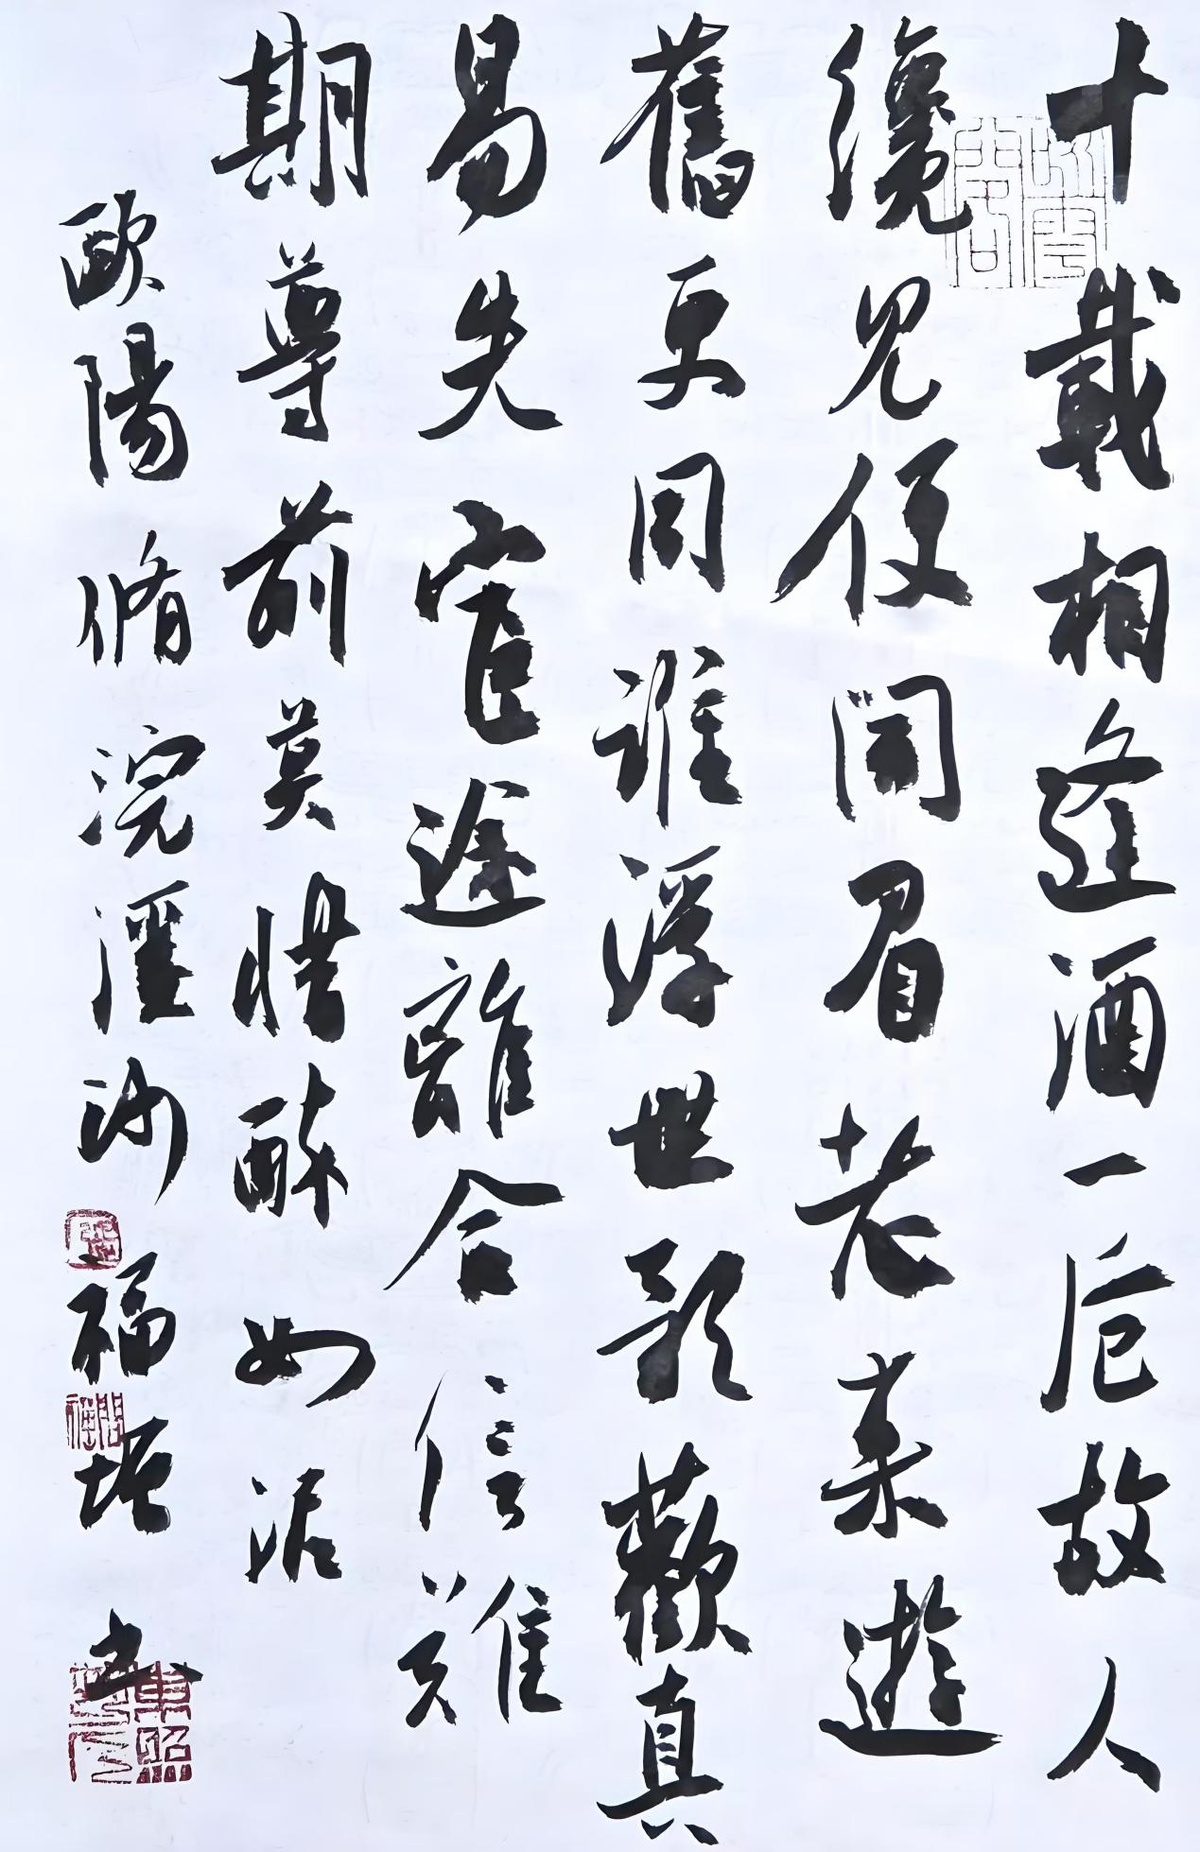 十載相逢酒一卮故人
纔見便開眉老來遊
舊更同誰浮世歌歡真
易失宦途離合信難
期尊前莫惜醉如泥
歐陽脩浣溪沙
福垣書